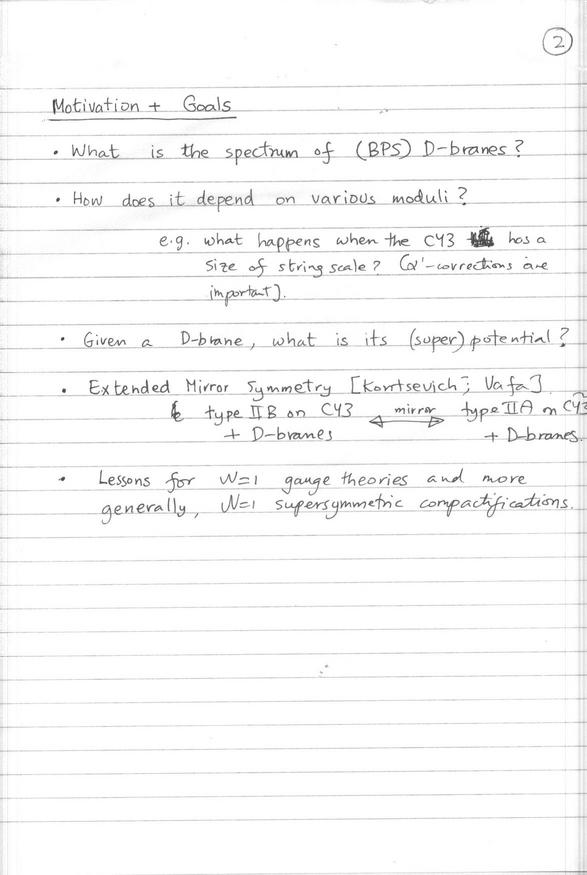 2
Motivation + Goals
• What is the spectrum of (BPS) D-branes?
• How does it depend on various moduli?
e.g. what happens when the CY3 has a
size of string scale? (α'-corrections are
important].
• Given a D-brane, what is its (super) potential?
• Extended Mirror Symmetry [Kontsevich; Vafa]
type IIB on CY3 ⟷ mirror type IIA on C͠Y3
+ D-branes + D-branes.
• Lessons for N=1 gauge theories and more
generally, N=1 supersymmetric compactifications.